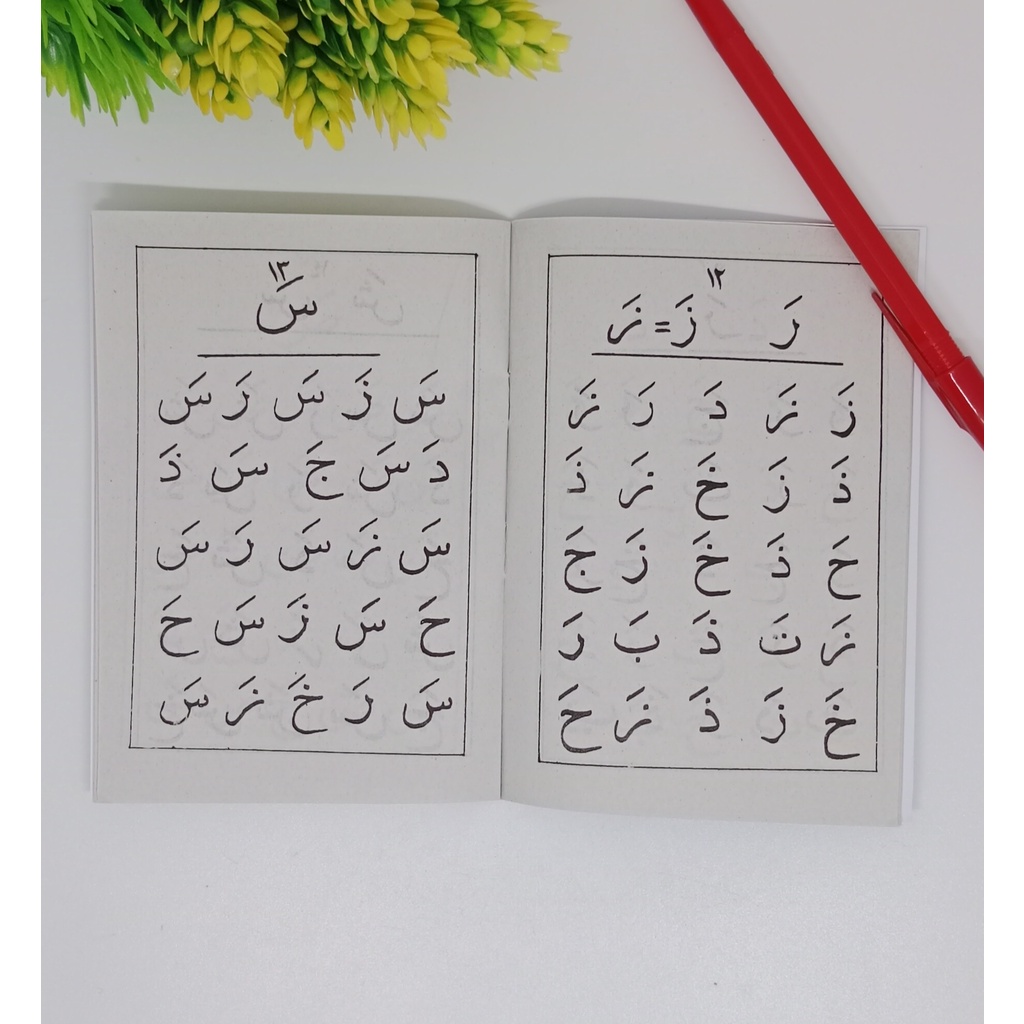 ١٢
رَ زَ = زَ
زَ زَ دَ رَ زَ
ذَ زَ خَ زَ ذَ
حَ ذَ خَ زَ جَ
زَ تَ ذَ بَ رَ
خَ زَ ذَ زَ حَ
١٣
سَ
سَ زَ سَ رَ سَ
دَ سَ جَ سَ ذَ
سَ زَ سَ رَ سَ
حَ سَ زَ سَ حَ
سَ رَ خَ زَ سَ